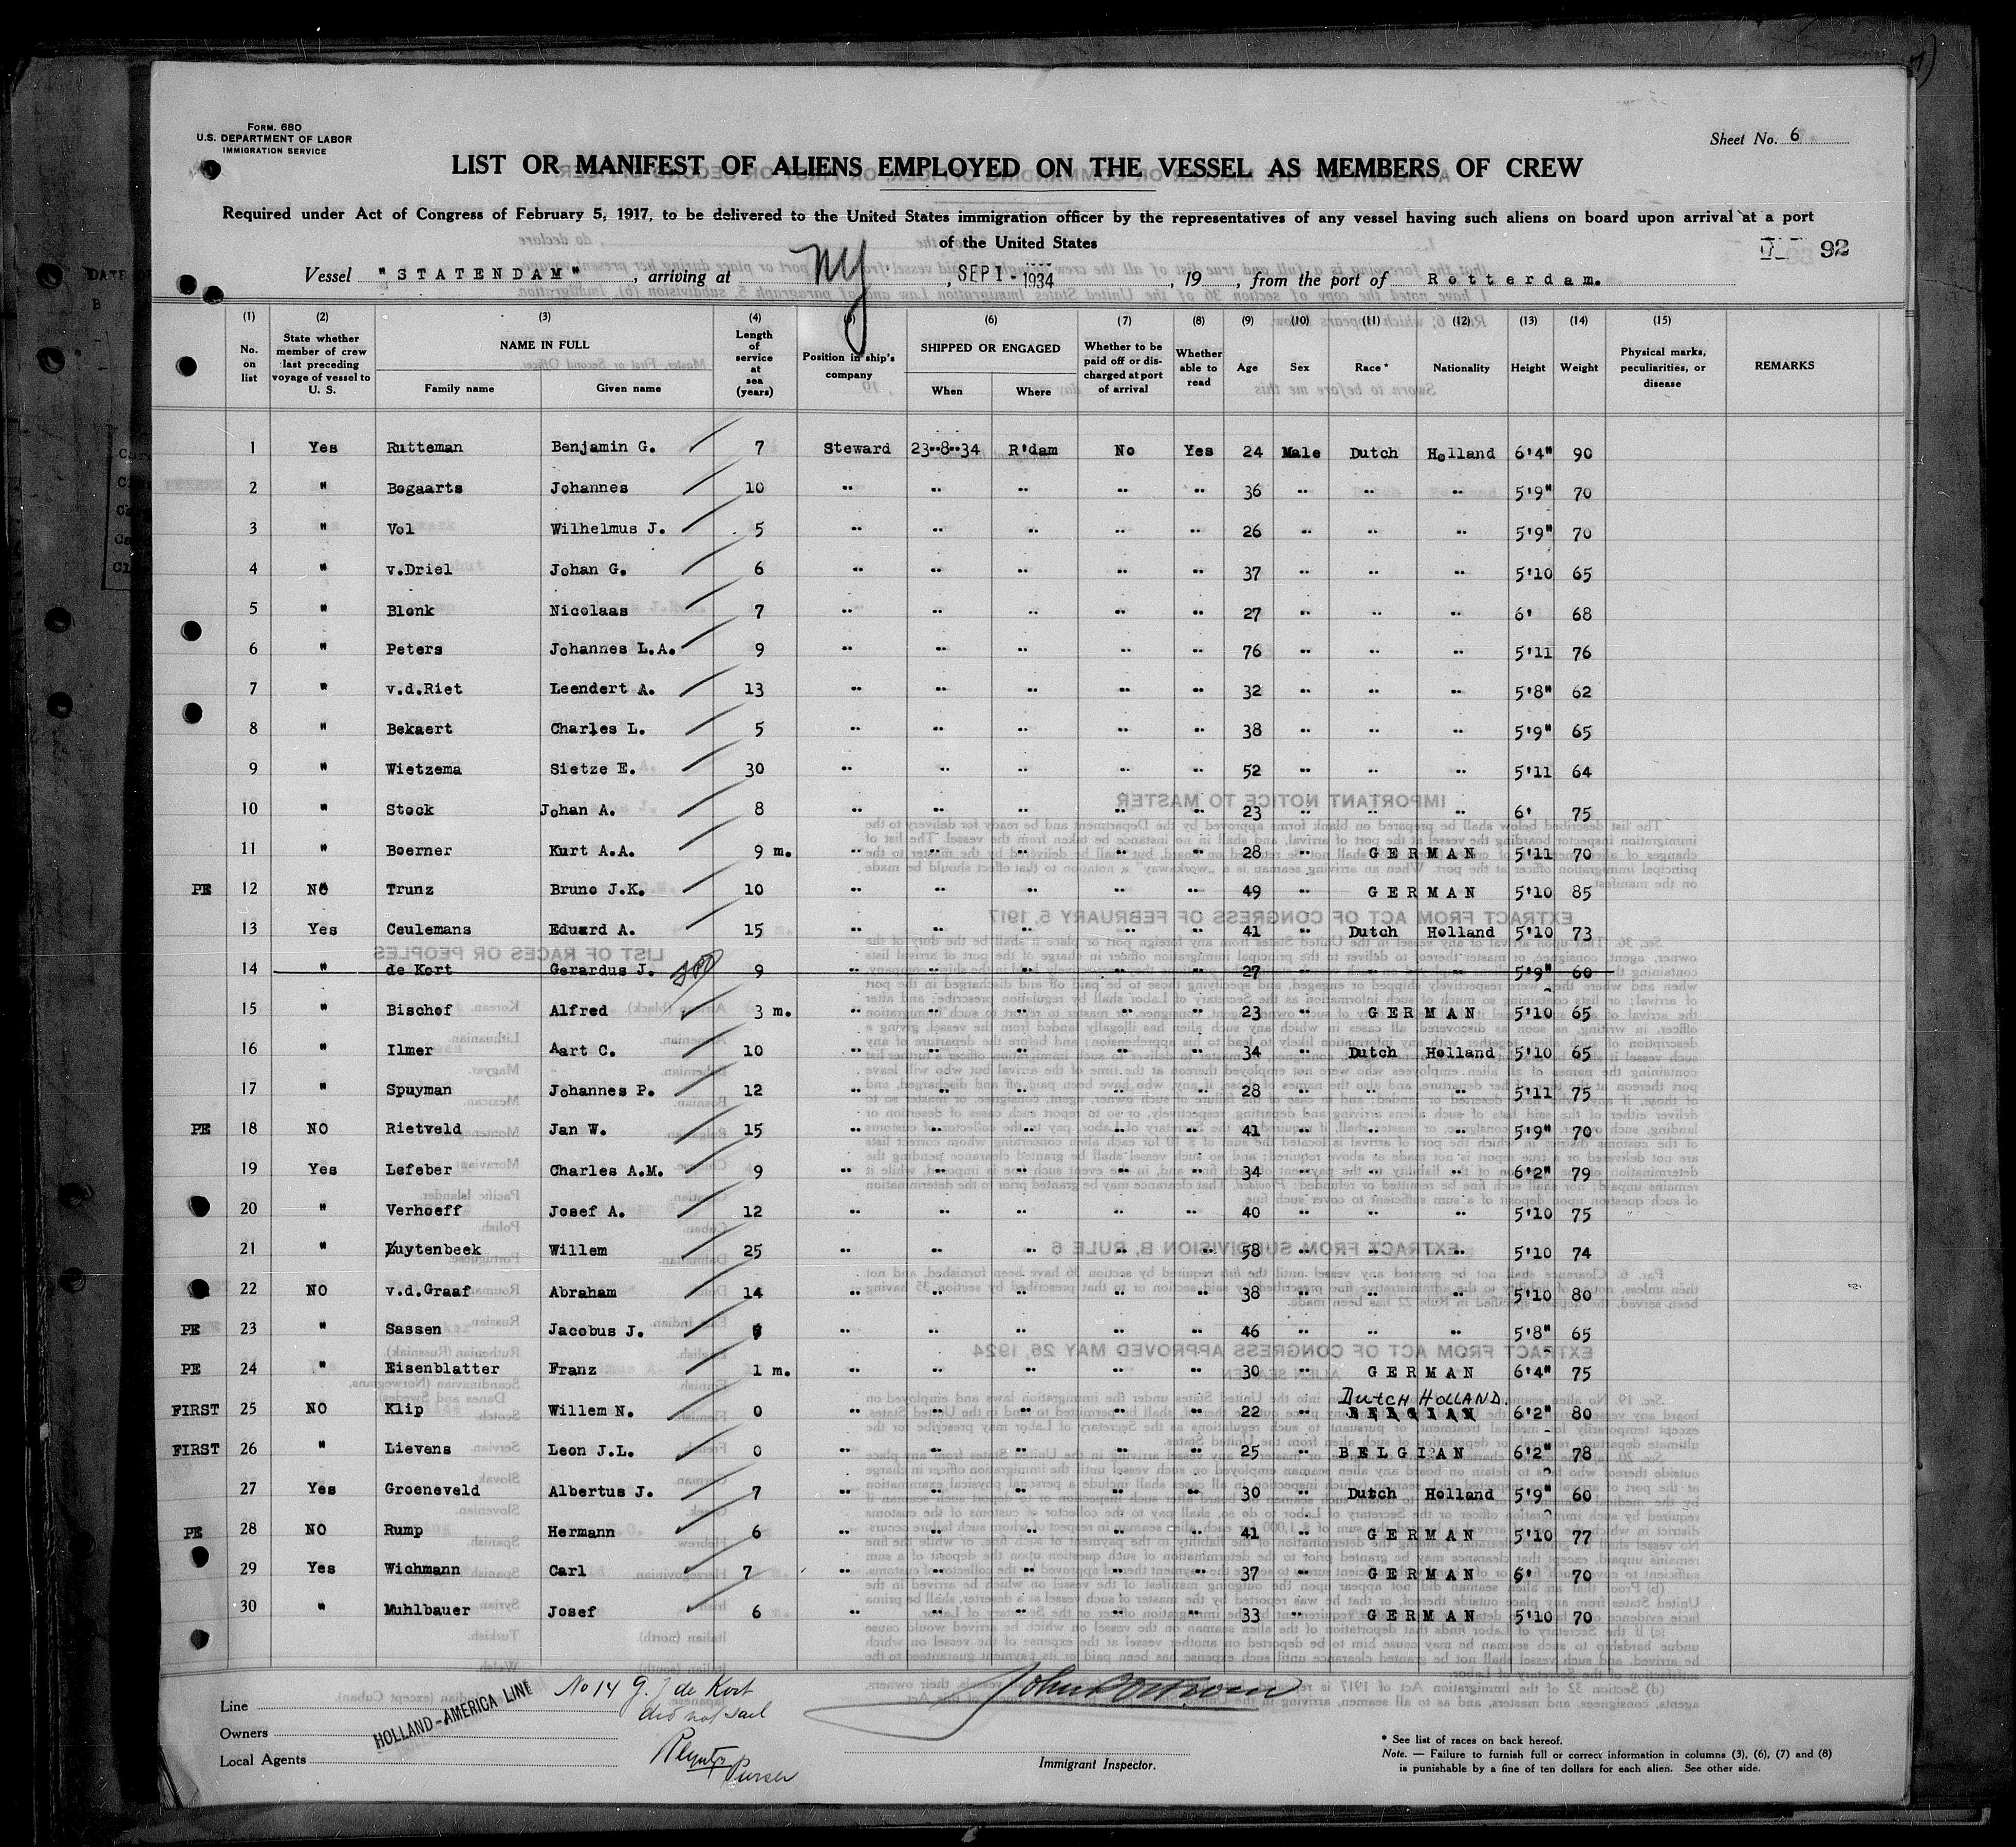 Form. 680
U.S. DEPARTMENT OF LABOR
IMMIGRATION SERVICE
Sheet No. 6
LIST OR MANIFEST OF ALIENS EMPLOYED ON THE VESSEL AS MEMBERS OF CREW
Required under Act of Congress of February 5, 1917, to be delivered to the United States immigration officer by the representatives of any vessel having such aliens on board upon arrival at a port
of the United States
92
Vessel "STATENDAM", arriving at NY, SEP 1 - 1934, 19, from the port of Rotterdam.
(1) (2) (3) (4) (5) (6) (7) (8) (9) (10) (11) (12) (13) (14) (15)
No. on list
State whether member of crew last preceding voyage of vessel to U. S.
NAME IN FULL
Family name
Given name
Length of service at sea (years)
Position in ship's company
SHIPPED OR ENGAGED
When
Where
Whether to be paid off or discharged at port of arrival
Whether able to read
Age
Sex
Race *
Nationality
Height
Weight
Physical marks, peculiarities, or disease
REMARKS
1 Yes Rutteman Benjamin G. 7 Steward 23-8-34 R'dam No Yes 24 Male Dutch Holland 6'4" 90
2 " Bogaarts Johannes 10 " " " " " 36 " " " 5'9" 70
3 " Vol Wilhelmus J. 5 " " " " " 26 " " " 5'9" 70
4 " v.Driel Johan G. 6 " " " " " 37 " " " 5'10 65
5 " Blonk Nicolaas 7 " " " " " 27 " " " 6' 68
6 " Peters Johannes L.A. 9 " " " " " 76 " " " 5'11 76
7 " v.d.Riet Leendert A. 13 " " " " " 32 " " " 5'8" 62
8 " Bekaert Charles L. 5 " " " " " 38 " " " 5'9" 65
9 " Wietzema Sietze E. 30 " " " " " 52 " " " 5'11 64
10 " Stock Johan A. 8 " " " " " 23 " " " 6' 75
11 " Boerner Kurt A.A. 9 m. " " " " " 28 " GERMAN 5'11 70
PE 12 NO Trunz Bruno J.K. 10 " " " " " 49 " GERMAN 5'10 85
13 Yes Ceulemans Eduard A. 15 " " " " " 41 " Dutch Holland 5'10 73
14 " de Kort Gerardus J. 9 " " " " " 27 " " " 5'9" 60
15 " Bischof Alfred 3 m. " " " " " 23 " GERMAN 5'10 65
16 " Ilmer Aart C. 10 " " " " " 34 " Dutch Holland 5'10 65
17 " Spuyman Johannes P. 12 " " " " " 28 " " " 5'11 75
PE 18 NO Rietveld Jan W. 15 " " " " " 41 " " " 5'9" 70
19 Yes Lefeber Charles A.M. 9 " " " " " 34 " " " 6'2" 79
20 " Verhoeff Josef A. 12 " " " " " 40 " " " 5'10 75
21 " Luytenbeek Willem 25 " " " " " 58 " " " 5'10 74
22 NO v.d.Graaf Abraham 14 " " " " " 38 " " " 5'10 80
PE 23 " Sassen Jacobus J. " " " " " 46 " " " 5'8" 65
PE 24 " Eisenblatter Franz 1 m. " " " " " 30 " GERMAN 6'4" 75
DUTCH HOLLAND.
FIRST 25 NO Klip Willem N. 0 " " " " " 22 " BELGIAN 6'2" 80
FIRST 26 " Lievens Leon J.L. 0 " " " " " 25 " BELGIAN 6'2" 78
27 Yes Groeneveld Albertus J. 7 " " " " " 30 " Dutch Holland 5'9" 60
PE 28 NO Rump Hermann 6 " " " " " 41 " GERMAN 5'10 77
29 Yes Wichmann Carl 7 " " " " " 37 " GERMAN 6' 70
30 " Muhlbauer Josef 6 " " " " " 33 " GERMAN 5'10 70
No 14 G. J de Kort
did not sail
Purser
Line
Owners
Local Agents
HOLLAND-AMERICA LINE
Immigrant Inspector.
* See list of races on back hereof.
Note. — Failure to furnish full or correct information in columns (3), (6), (7) and (8)
is punishable by a fine of ten dollars for each alien. See other side.